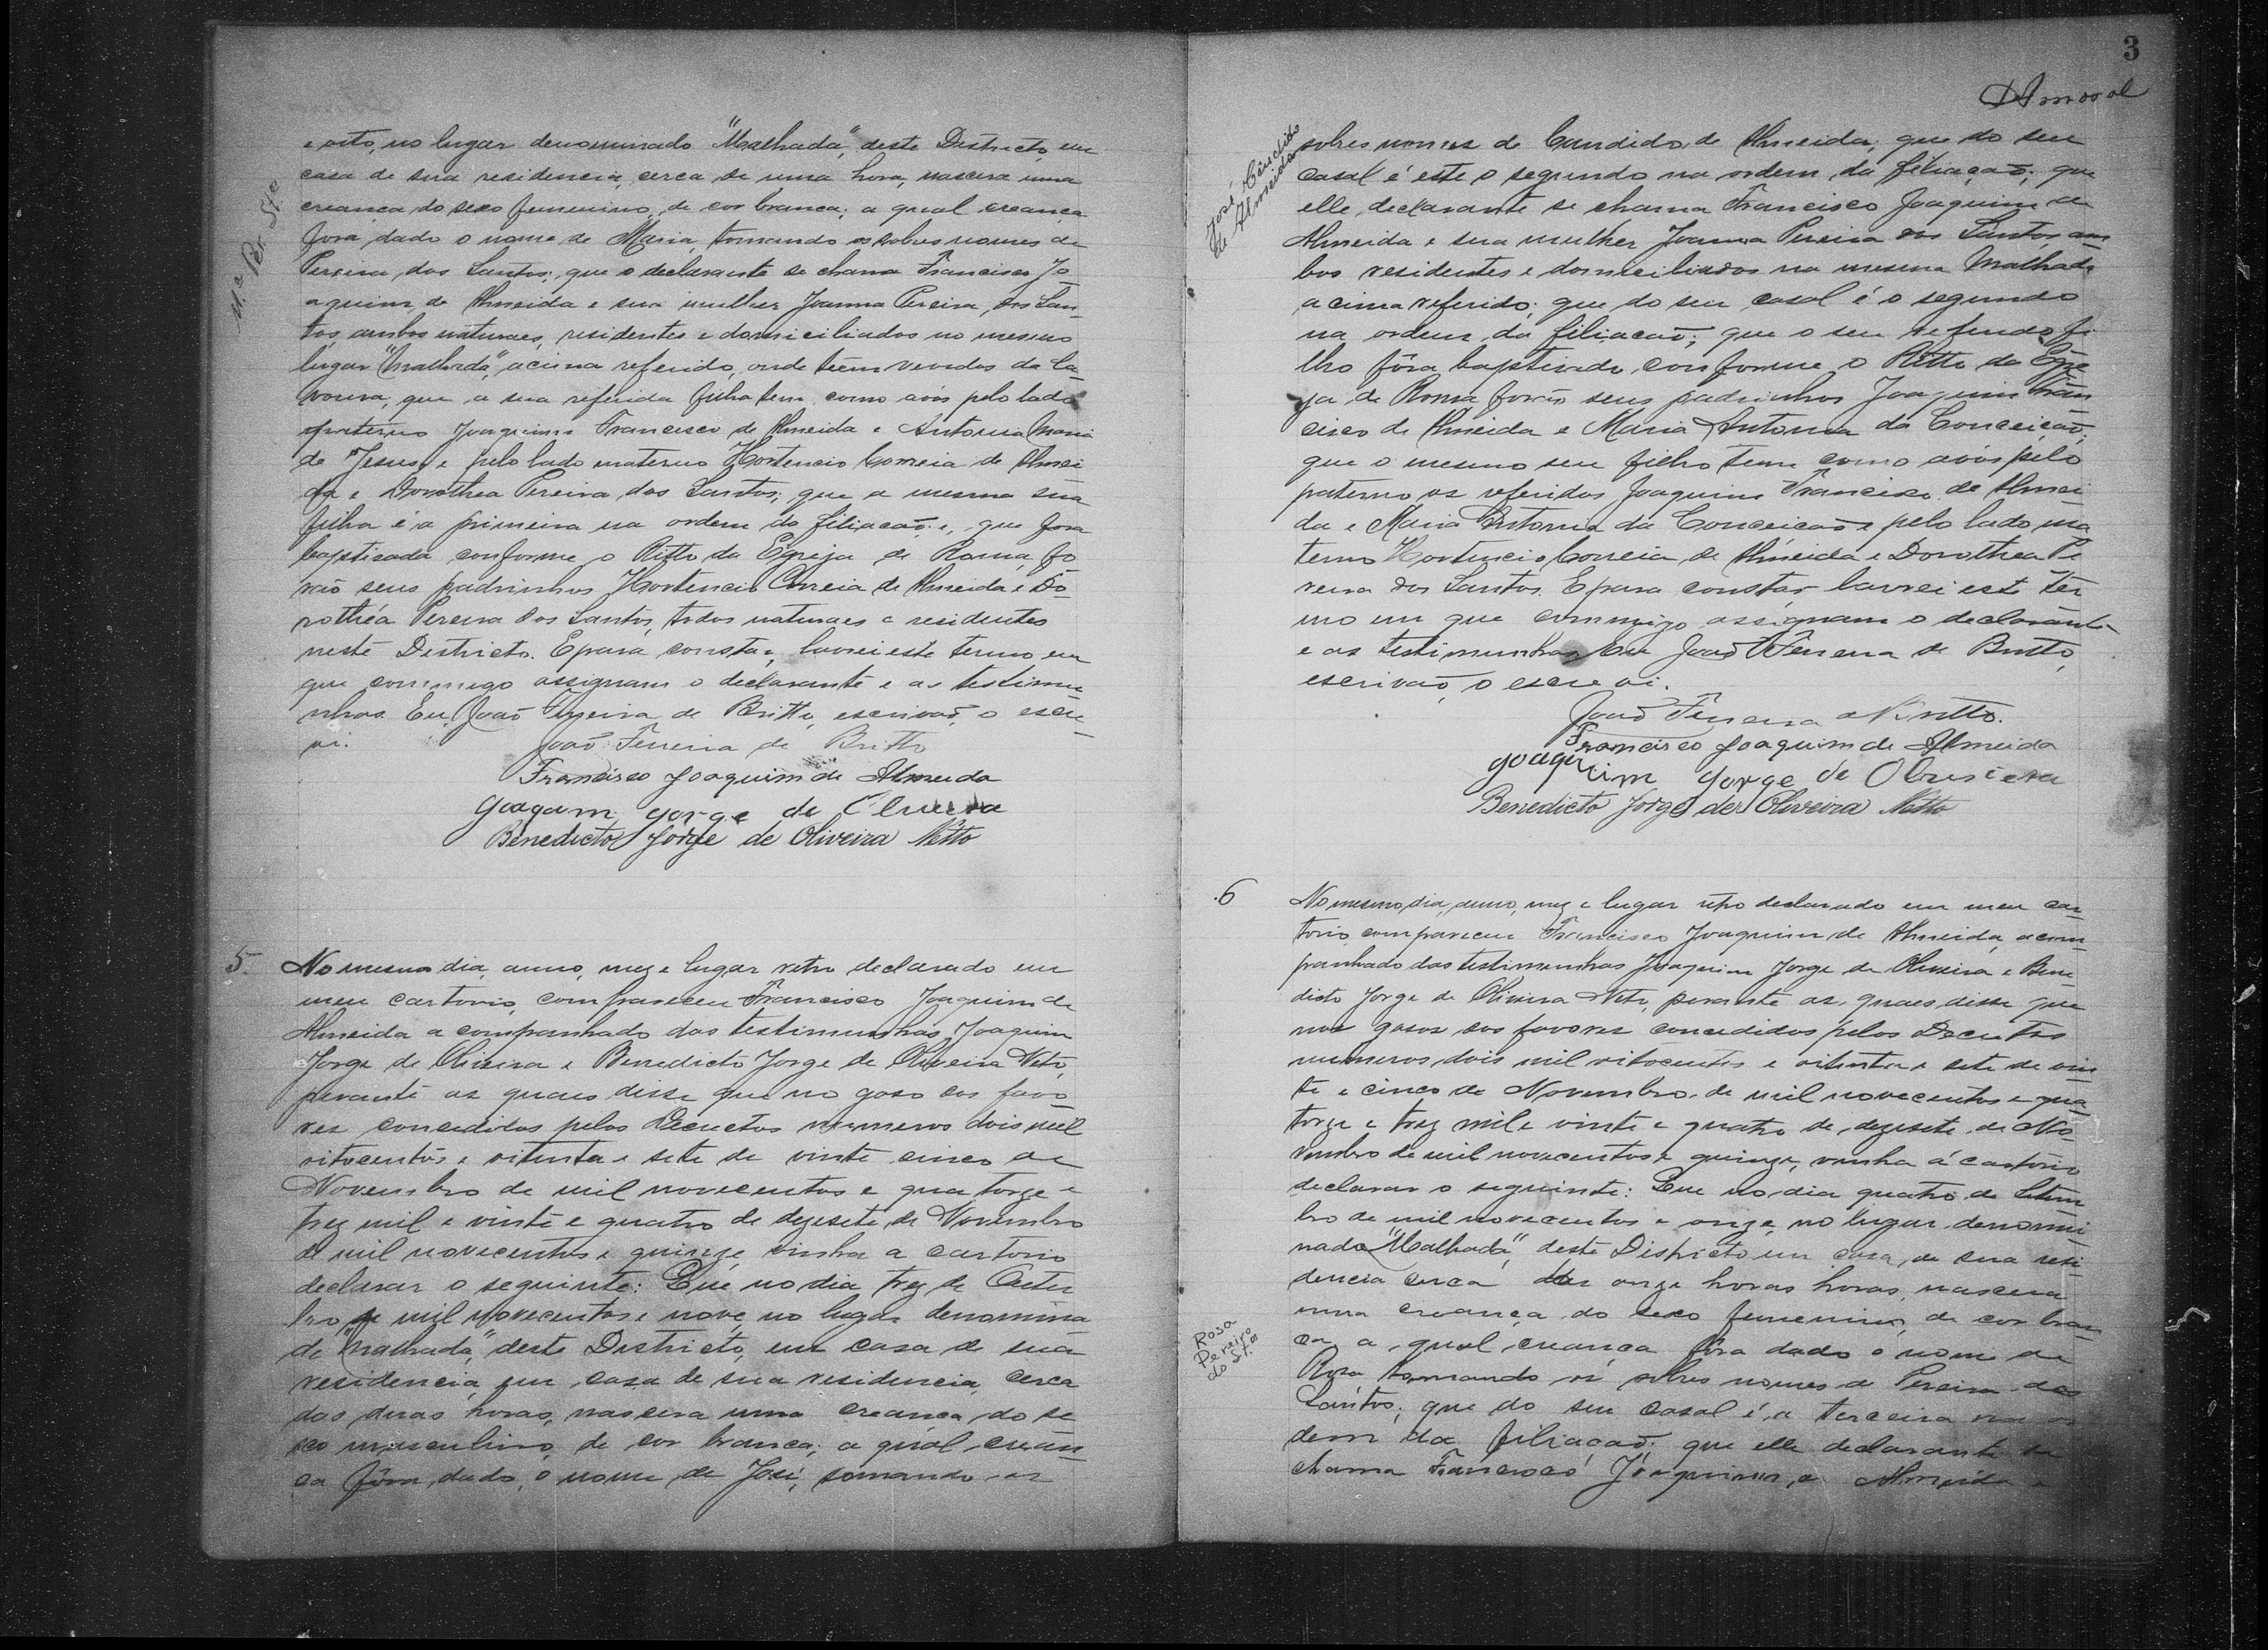 e oito, no lugar denominado "Malhada", deste Districto, em
casa de sua residencia, cerca de uma hora, nascera uma
creança do sexo femenino, de cor branca; a qual creança
fora dado o nome de Maria, tomando os sobres nomes de
Pereira dos Santos; que o declarante se chama Francisco Jo
aquim de Almeida e sua mulher Joanna Pereira dos San-
tos, ambos naturaes, residentes e domiciliados no mesmo
lugar "Malhada", acima referido, onde têem vivedos da la-
voura, que a sua referida filha tem como avós pelo lado
paterno Joaquim Francisco de Almeida e Antonia Maria
de Jesus, e pelo lado materno Hortencio Correia de Almei
da e Dorothea Pereira dos Santos; que a mesma sua
filha é a primeira na ordem da filiação; e, que fora
baptisada conforme o Ritto da Egreja de Roma, fo
rão seus padrinhos Hortencio Correia de Almeida e Do-
rothéa Pereira dos Santos, todos naturaes e residentes
neste Districto. E para constar, lavrei este termo em
que commigo assignam o declarante e as testimu
nhas. Eu, João Ferreira de Britto, escrivão, o escre-
vi.
João Ferreira de Britto
Francisco Joaquim de Almeida
Joaquim Jorge de Oliveira
Benedicto Jorge de Oliveira Netto
5.
No mesmo dia, anno, mez e lugar retro declarado em
meu cartorio, compareceu Francisco Joaquim de
Almeida acompanhado das testimunhas, Joaquim
Jorge de Oliveira e Benedicto Jorge de Oliveira Neto,
perante as quaes disse que no goso dos favo
res concedidos pelos Decretos numeros dois mil
oitocentos e oitenta e sete de vinte cinco de
Novembro de mil novecentos e quatorze e
trez mil e vinte e quatro de dezesete de Novembro
de mil novecentos e quinze, vinha a cartorio
declarar o seguinte: Que no dia trez de Outu
bro de mil novecentos e nove, no lugar denomina
do "Malhada", deste Districto, em casa de sua
residencia, em casa de sua residencia, cerca
das duas horas, nascera uma creança do se
xo masculino, de cor branca; a qual crean-
ça fôra dado o nome de José, tomando os
3
José Cândido
de Almeida
sobres nomes de Candido de Almeida; que do seu
casal é este o segundo na ordem da filiação; que
elle declarante se chama Francisco Joaquim de
Almeida e sua mulher Joanna Pereira dos Santos am
bos residentes e domiciliados na mesma Malhada
acima referido; que do seu casal é o segundo
na ordem da filiação; que o seu referido fi
lho fôra baptisado conforme o Ritto da Egre
ja de Roma forão seus padrinhos Joaquim Fran
cisco de Almeida e Maria Antonia da Conceição;
que o mesmo seu filho tem como avós pelo
paterno os referidos Joaquim Francisco de Almei
da e Maria Antonia da Conceição e pelo lado ma
terno Hortencio Correia de Almeida e Dorothea Pe
reira dos Santos. E para constar lavrei este ter
mo em que commigo assignam o declarante
e as testimunhas. Eu João Ferreira de Britto,
escrivão, o escrevi.
João Ferreira de Britto.
Francisco Joaquim de Almeida
Joaquim Jorge de Oliveira
Benedicto Jorge de Oliveira Netto
6
No mesmo dia, anno, mez e lugar retro declarado em meu car
torio compareceu Francisco Joaquim de Almeida, acom
panhado das testimunhas Joaquim Jorge de Oliveira e Bene
dicto Jorge de Oliveira Neto, perante as quaes disse que
nos gosos dos favores concedidos pelos Decretos
numeros dois mil oitocentos e oitenta e sete de vin
te e cinco de Novembro de mil novecentos e qua
torze e trez mil e vinte e quatro de dezesete de No
vembro de mil novecentos e quinze, vinha á cartorio
declarar o seguinte: Que no dia quatro de Setem
bro de mil novecentos e onze, no lugar denomi
nado "Malhada", deste Districto em casa, de sua resi
dencia cerca das onze horas horas, nascera
uma creança do sexo femenino, de cor bran
ca a qual creança fôra dado o nome de
Rosa, tomando os sobres nomes de Pereira dos
Santos; que do seu casal é a terceira na or
dem da filiação; que elle declarante se
chama Francisco Joaquim de Almeida e
Rosa
Pereira
do St.os